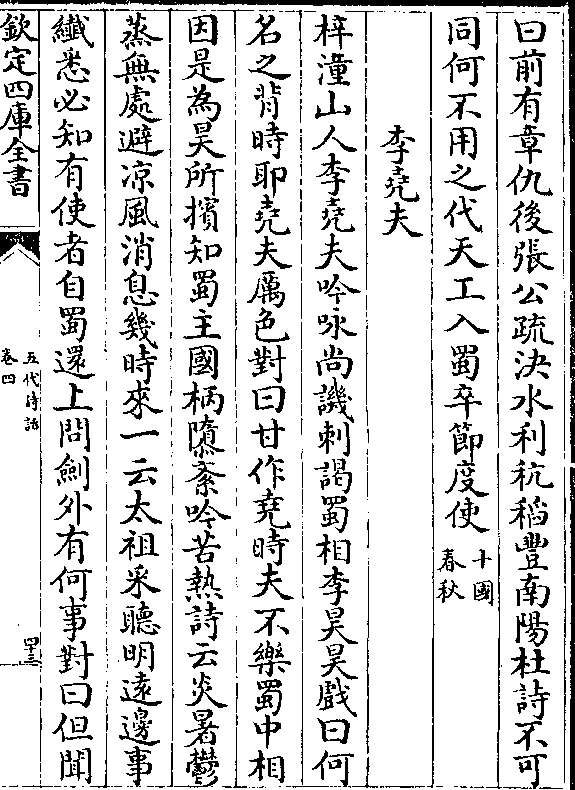 曰前有章仇後張公疏決水利秔稻豐南陽杜詩不可
同何不用之代天工入蜀卒節度使十國春秋
李堯夫
梓潼山人李堯夫吟咏尚譏刺謁蜀相李昊昊戲曰何
名之背時耶堯夫厲色對曰甘作堯時夫不樂蜀中相
因是為昊所擯知蜀主國柄隳紊吟苦熱詩云炎暑鬱
蒸無處避凉風消息幾時來一云太祖采聽明遠邊事
纎悉必知有使者自蜀還上問劍外有何事對曰但聞
欽定四庫全書
五代詩話
卷四
四十三